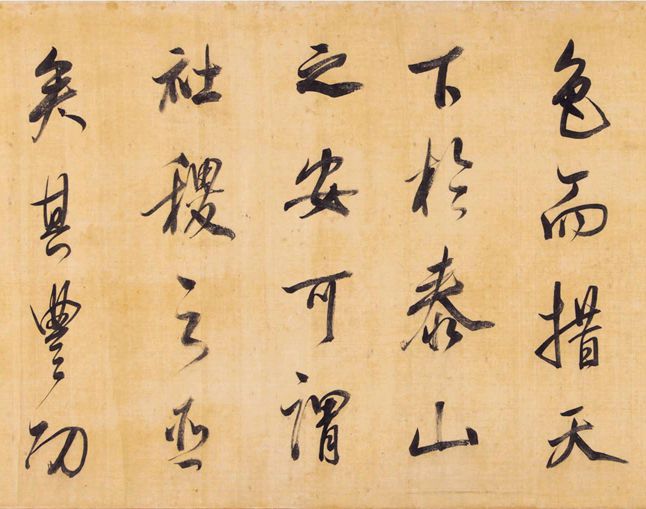 色而措天
下於泰山
之安可謂
社稷之臣
矣其豐功